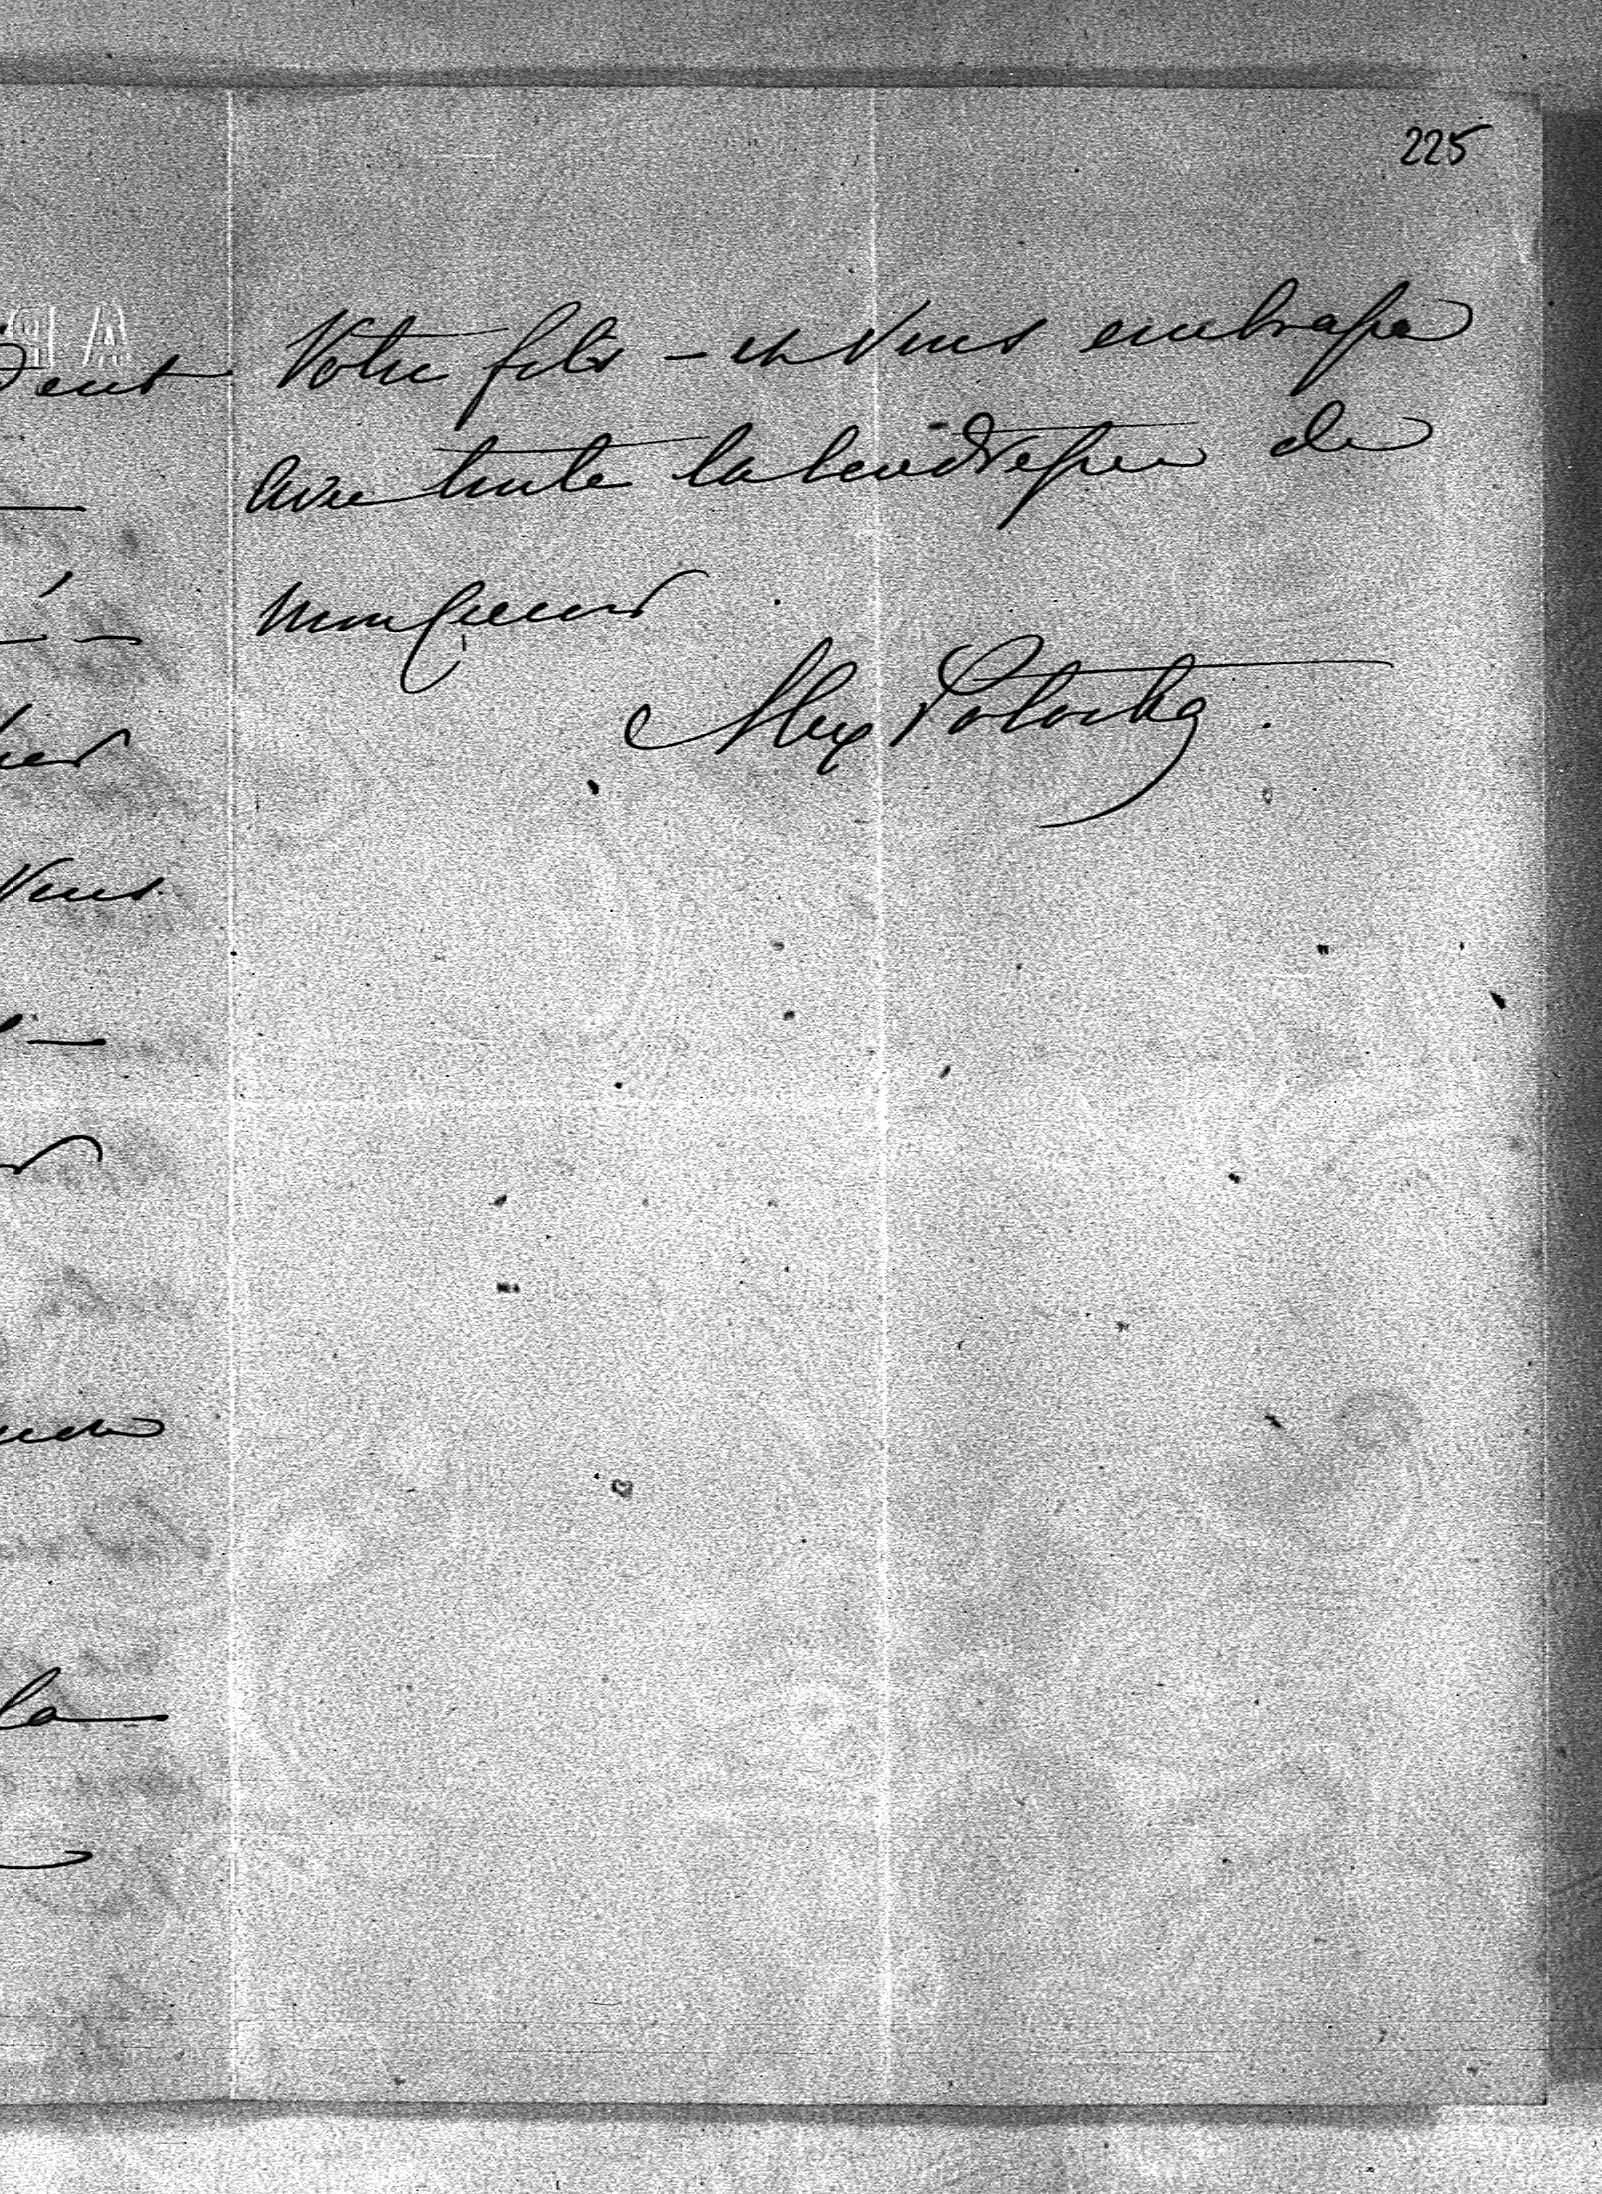 225
Votre fils – et Vous embrasse
avec toute la tendresse de
mon Cœur
Alex Potocka.
ent
her
Vous
la